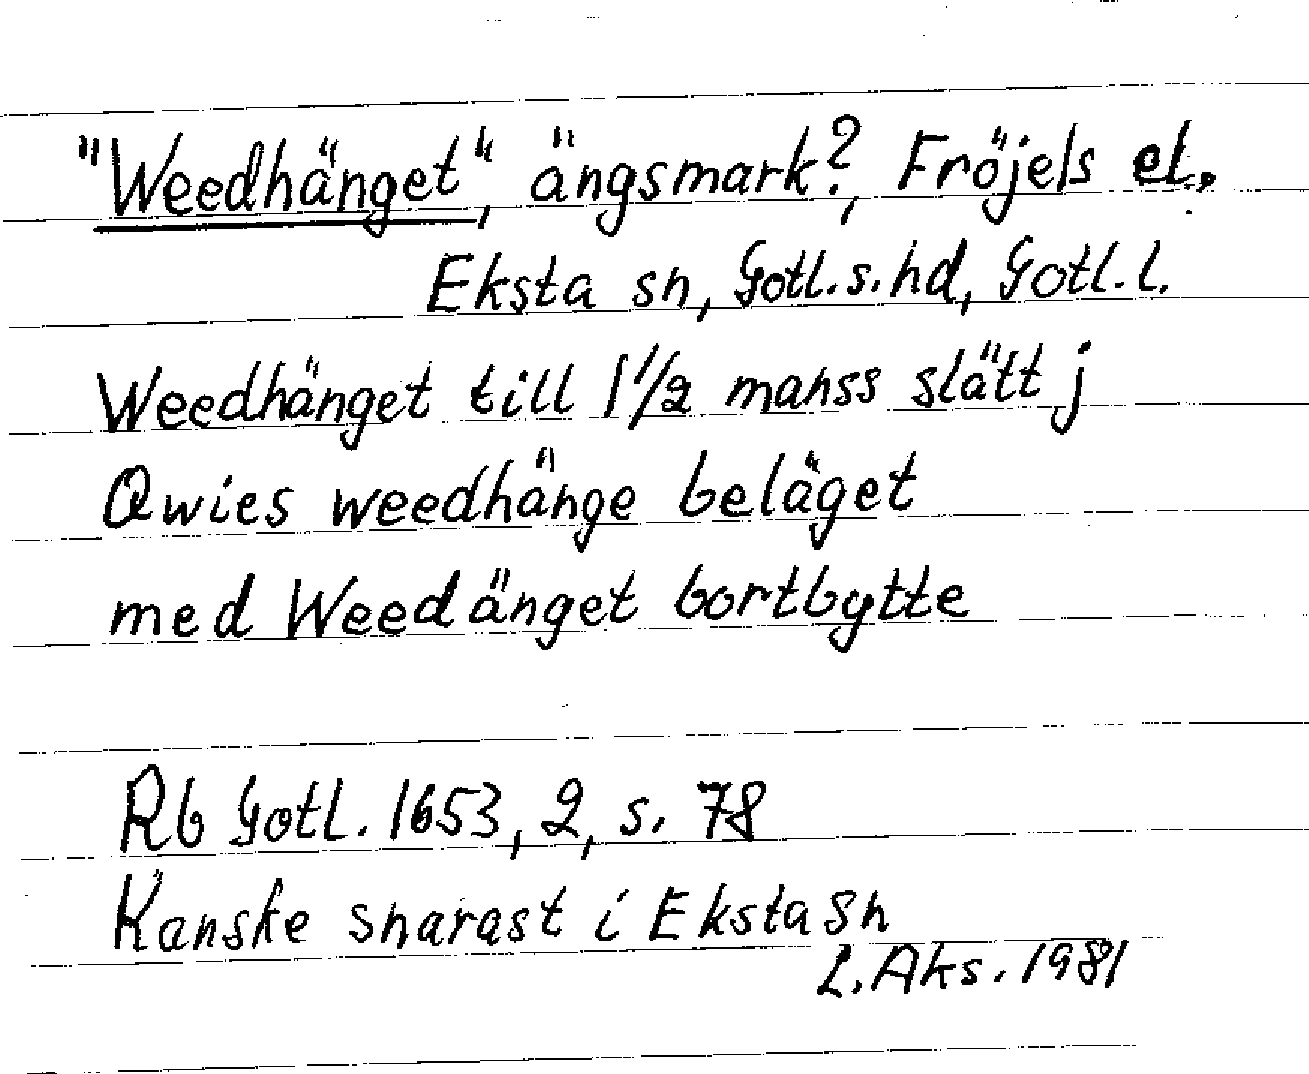 "Weedhänget", ängsmark?, Fröjels el.
Eksta sn, Gotl.s.hd, Gotl.l.
Weedhänget till 1 1/2 manss slätt j
Qwies weedhänge beläget
med Weedänget bortbytte
Rb Gotl. 1653, 2, s. 78
Kanske snarast i Eksta sn
L. Aks. 1981